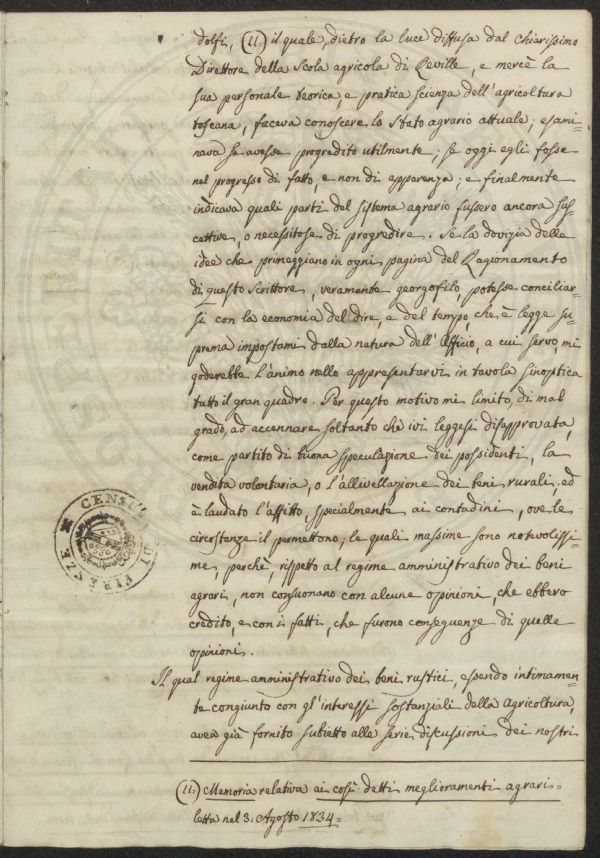 dolfi, (11:) il quale, dietro la luce diffusa dal Chiarissimo
Direttore della Scola agricola di Reville, e mercè la
sua personale teorica, e pratica scienza dell'agricoltura
toscana, faceva conoscere lo Stato agrario attuale; esami=
nava se avesse progredito utilmente; se oggi egli fosse
nel progresso di fatto, e non di apparenza; e finalmente
indicava quali parti del sistema agrario fussero ancora sus=
cettive, o necessitose di progredire. Se la dovizia delle
idee che primeggiano in ogni pagina del Ragionamento
di questo Scrittore, veramente georgofilo, potesse conciliar=
si con la economia del dire, e del tempo, che è legge su=
prema impostami dalla natura dell'Officio, a cui servo, mi
goderebbe l'animo nello appresentarvi in tavola sinottica
tutto il gran quadro. Per questo motivo mi limito, di mal
grado, ad accennare soltanto che ivi leggesi disapprovata,
come partito di buona speculazione dei possidenti, la
vendita volontaria, o l'allivellazione dei beni rurali, ed
è laudato l'affitto, specialmente ai contadini, ove le
circostanze il permettono; le quali massime sono notevolissi=
me, perchè, rispetto al regime amministrativo dei beni
agrari, non consuonano con alcune opinioni, che ebbero
credito, e con i fatti, che furono conseguenze di quelle
opinioni.
Il qual regime amministrativo dei beni rustici, essendo intimamen=
te congiunto con gl'interessi sostanziali della Agricoltura,
avea già fornito subietto alle serie discussioni dei nostri
(11:) Memoria relativa ai così detti miglioramenti agrari=
letta nel 3: Agosto 1834=
CENS
DI
FIRENZE